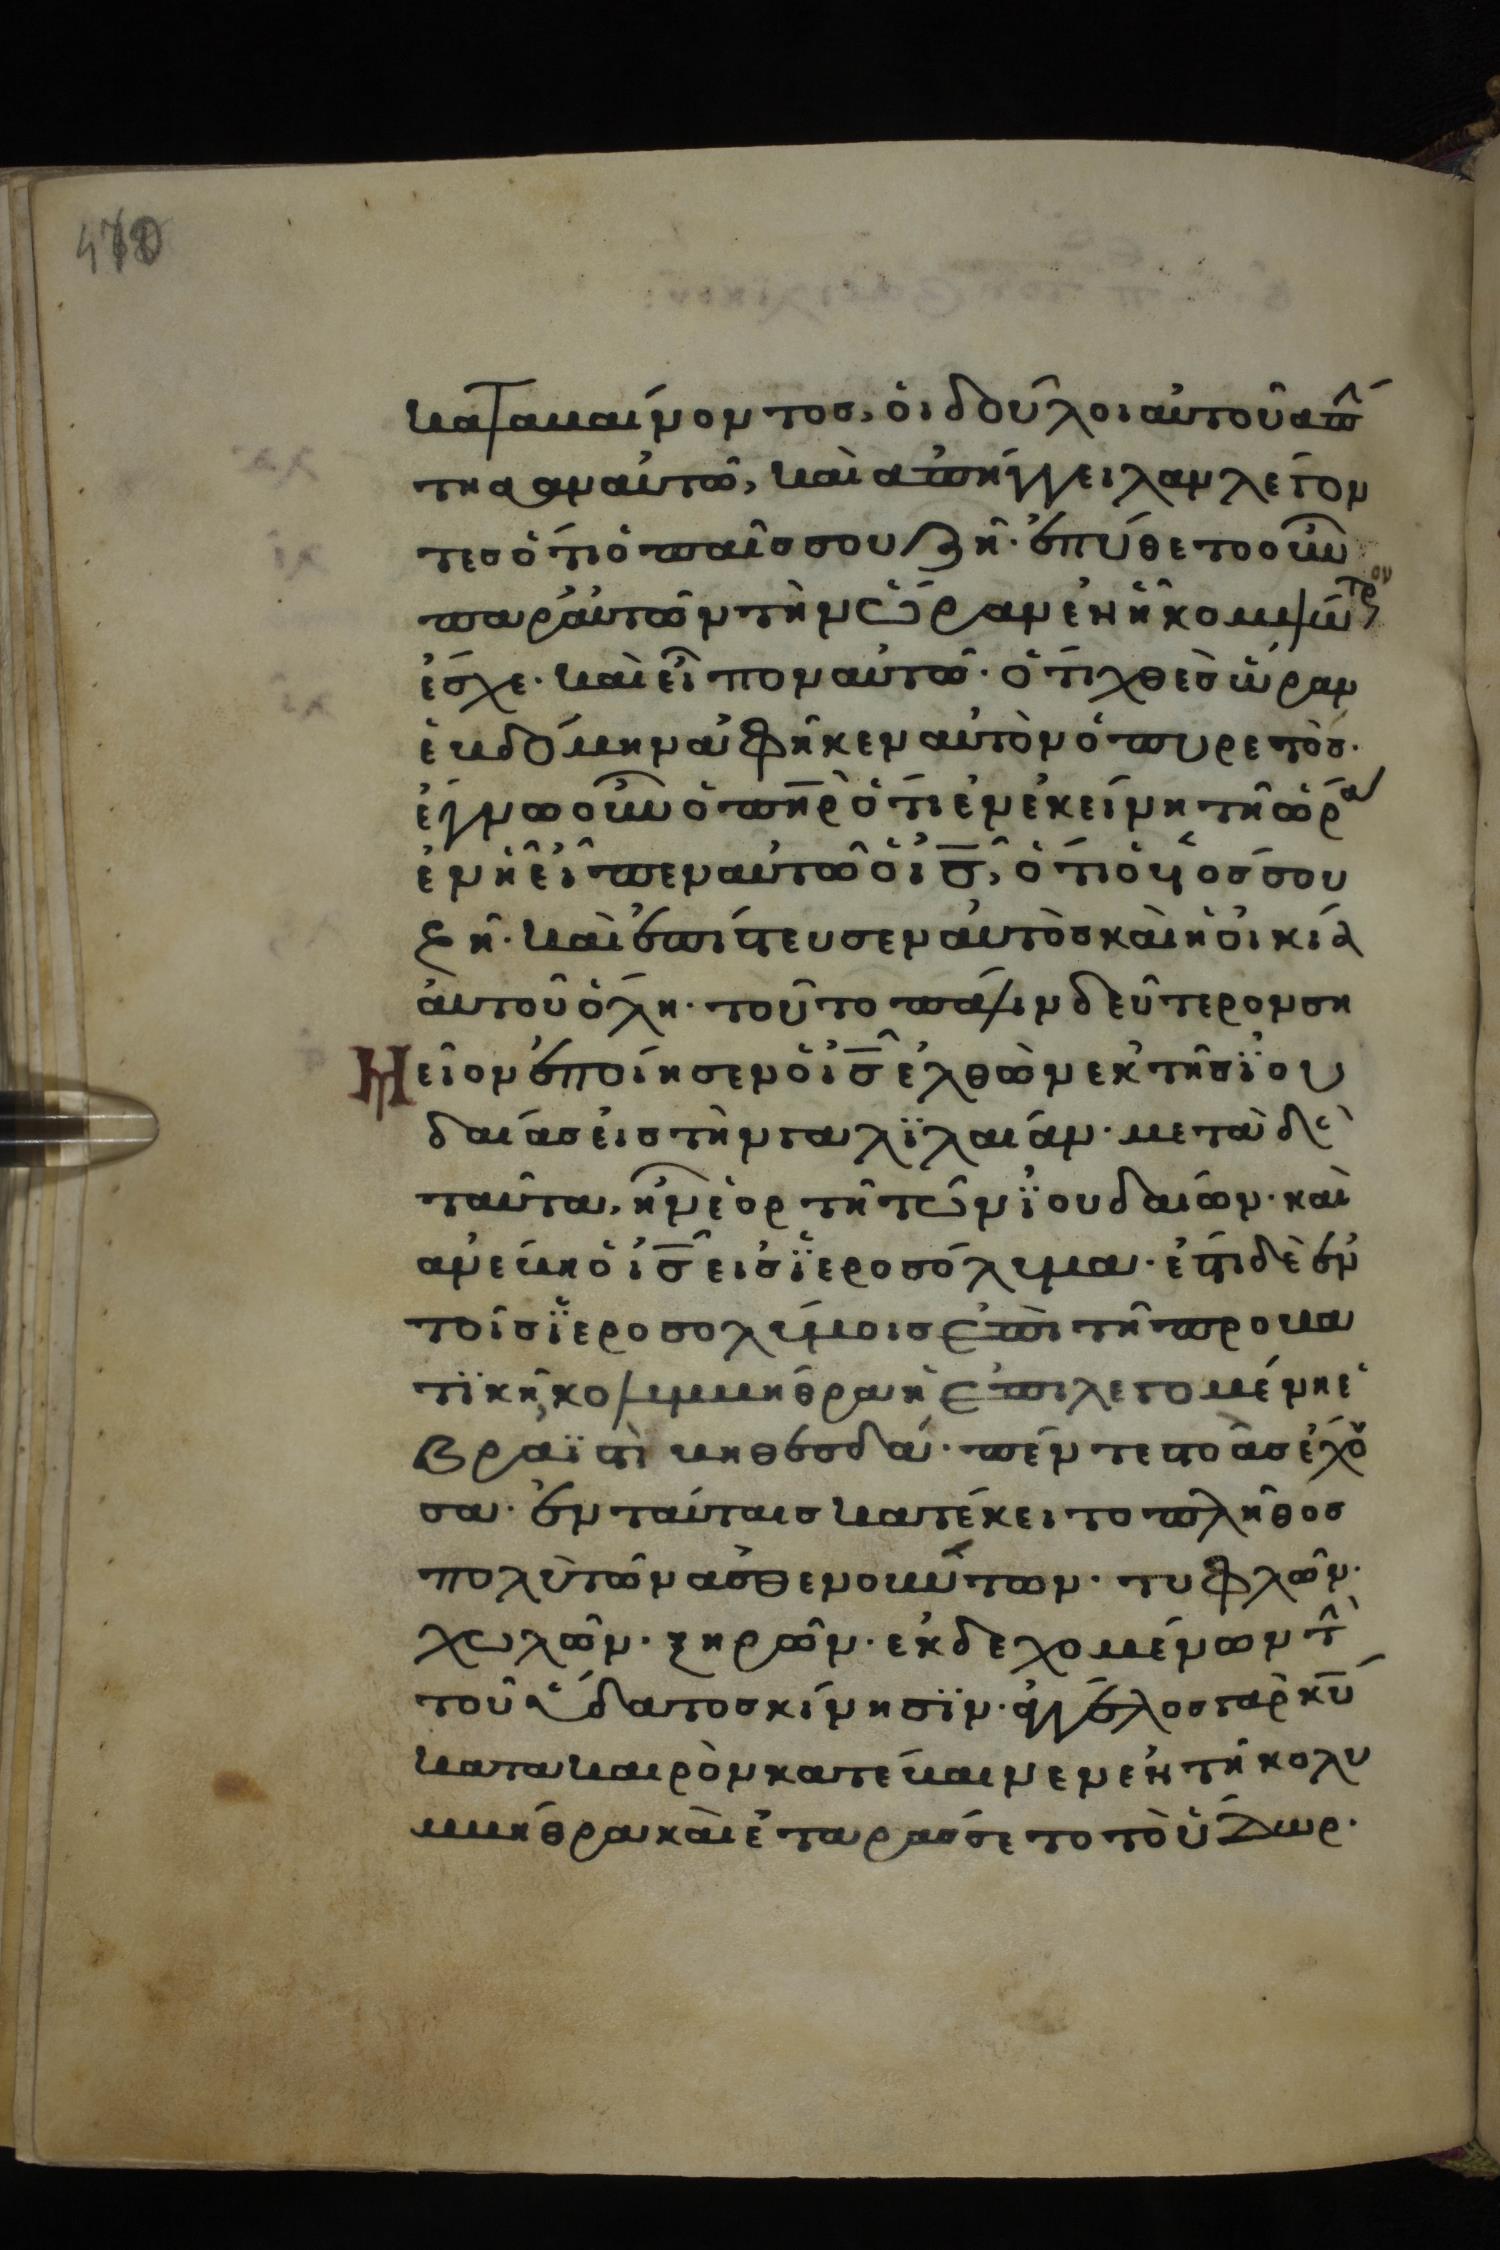 470
καταβαίνοντος, ὁι δοῦλοι αὐτοῦ απήν
τησαν αὐτῶ, καὶ απήγγειλαν λέγον
τεσ ὅτι ὁ παῖσ σου ζῆ· ἐπύθετο οὖν
παρ' ἀυτῶν τὴν ὥραν ἐν ἧ κομψότερον
ἔσχε· καὶ εἶπον αὐτῶ· ὅτι χθὲσ ὥραν
ἑβδόμην ἀφῆκεν αὐτὸν ὁ πυρετόσ·
ἔγνω οὖν ὁ πηρ ὅτι ἐν ἐκείνη τῆ ὥρα
ἐν ἧ εἶπεν αὐτῶ ὁ ισ, ὅτι ὁ υἱόσ σου
ζῆ· καὶ ἐπίστευσεν αυτὸσ καὶ ἡ ὀικία
ἀυτοῦ ὅλη· τοῦτο πάλιν δεύτερον ση
μεῖον ἐποίησεν ὁ ισ ἐλθὼν εκ τῆσ ϊου
δαίασ εἰσ τὴν γαλϊλαίαν· μετὰ δὲ
ταῦτα, ἦν ἑορτὴ τῶν ϊουδαίων· καὶ
ανέβη ὁ ισ εισ ϊεροσόλυμα· ἔστι δὲ ἐν
τοῖσ ϊεροσολύμοισ ἐπὶ τῆ προβα
τϊκῆ κολυμβήθρα ἡ ἐπιλεγομένη ἑ
βραϊστὶ βηθεσδά· πέντε στοὰσ ἔχου
σα· ἐν ταύταισ κατέκειτο πλῆθοσ
πολὺ τῶν ἀσθενούντων· τυφλῶν·
χωλῶν· ξηρῶν· εκδεχομένων τὴν
τοῦ ὕδατοσ κίνησϊν· ἄγγελοσ γαρ κυ
κατα καιρὸν κατέβαινεν ἐν τῆ κολυ
μβήθρα καὶ ἐταράσσετο τὸ ὕδωρ·